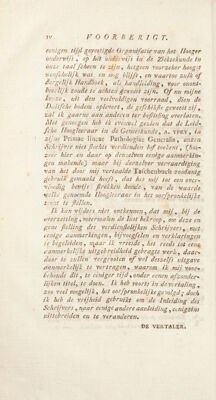 IV VOORBERIGT.
eenigen tijd gevestigde Organisatie van het Hooger
onderwijs, op het onderwijs in de Ziektekunde in
onze taal scheen te zijn, hetgeen voorzeker hoogst
wenschelijk was en nog blijft, en waarom zulk of
dergelijk Handboek, als handleiding, voor onont-
beerlijk zoude te achten geweest zijn. Of nu mijne
keuze, uit den veelvuldigen voorraad, dien de
Duitsche bodem oplevert, de geschikste geweest zij,
zal ik gaarne aan anderen ter beslissing overlaten.
Met genoegen heb ik evenwel gezien dat de Leid-
sche Hoogleeraar in de Geneeskunde,
zijne Primae lineae Pathologiae Generalis, dezen
Schrijver niet slechts verdienden lof toekent (hoe-
zeer hier en daar op denzelven eenige aanmerkin-
gen makende) maar bij derzelver vervaardiging
van het door mij vertaalde Taschenbuch zoodanig
gebruik gemaakt heeft, dat het mij tot een over-
vloedig bewijs strekken konde, van de waarde
welke genoemde Hoogleeraar in het oorspronkelijke
vond te stellen.
Ik kan wijders niet ontkennen, dat mij, bij de
overzetting, meermalen de lust bekroop, om deze en
gene stelling des verdienstelijken Schrijvers, met
eenige aanmerkingen, bijvoegselen en verklaringen
te begeleiden, maar ik vreesde, het reeds tot eene
aanmerkelijke uitgebreidheid gebragte werk, daar-
door te zullen vergrooten of wel deszelfs uitgave
aanmerkelijk te vertragen, waarom ik mij voor-
behoude dit, te eeniger tijd, onder eenen afzonder-
lijken titel, te doen. Ik heb voorts in de vertaling,
zoo veel mogelijk, het oorspronkelijke gevolgd; doch
ik heb de vrijheid gebruikt om de Inleiding des
Schrijvers, naar eenige andere aanleiding, eenigzins
uittebreiden en te veranderen.
DE VERTALER.